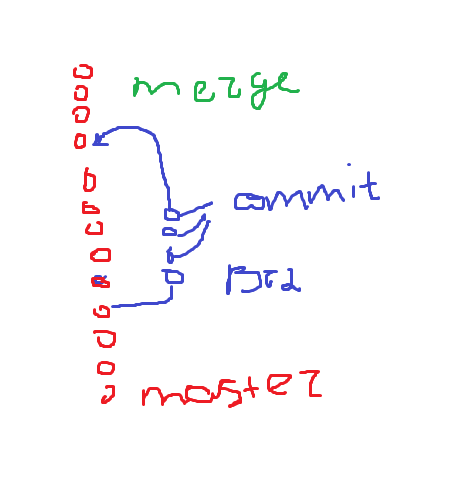 merge
commit
master